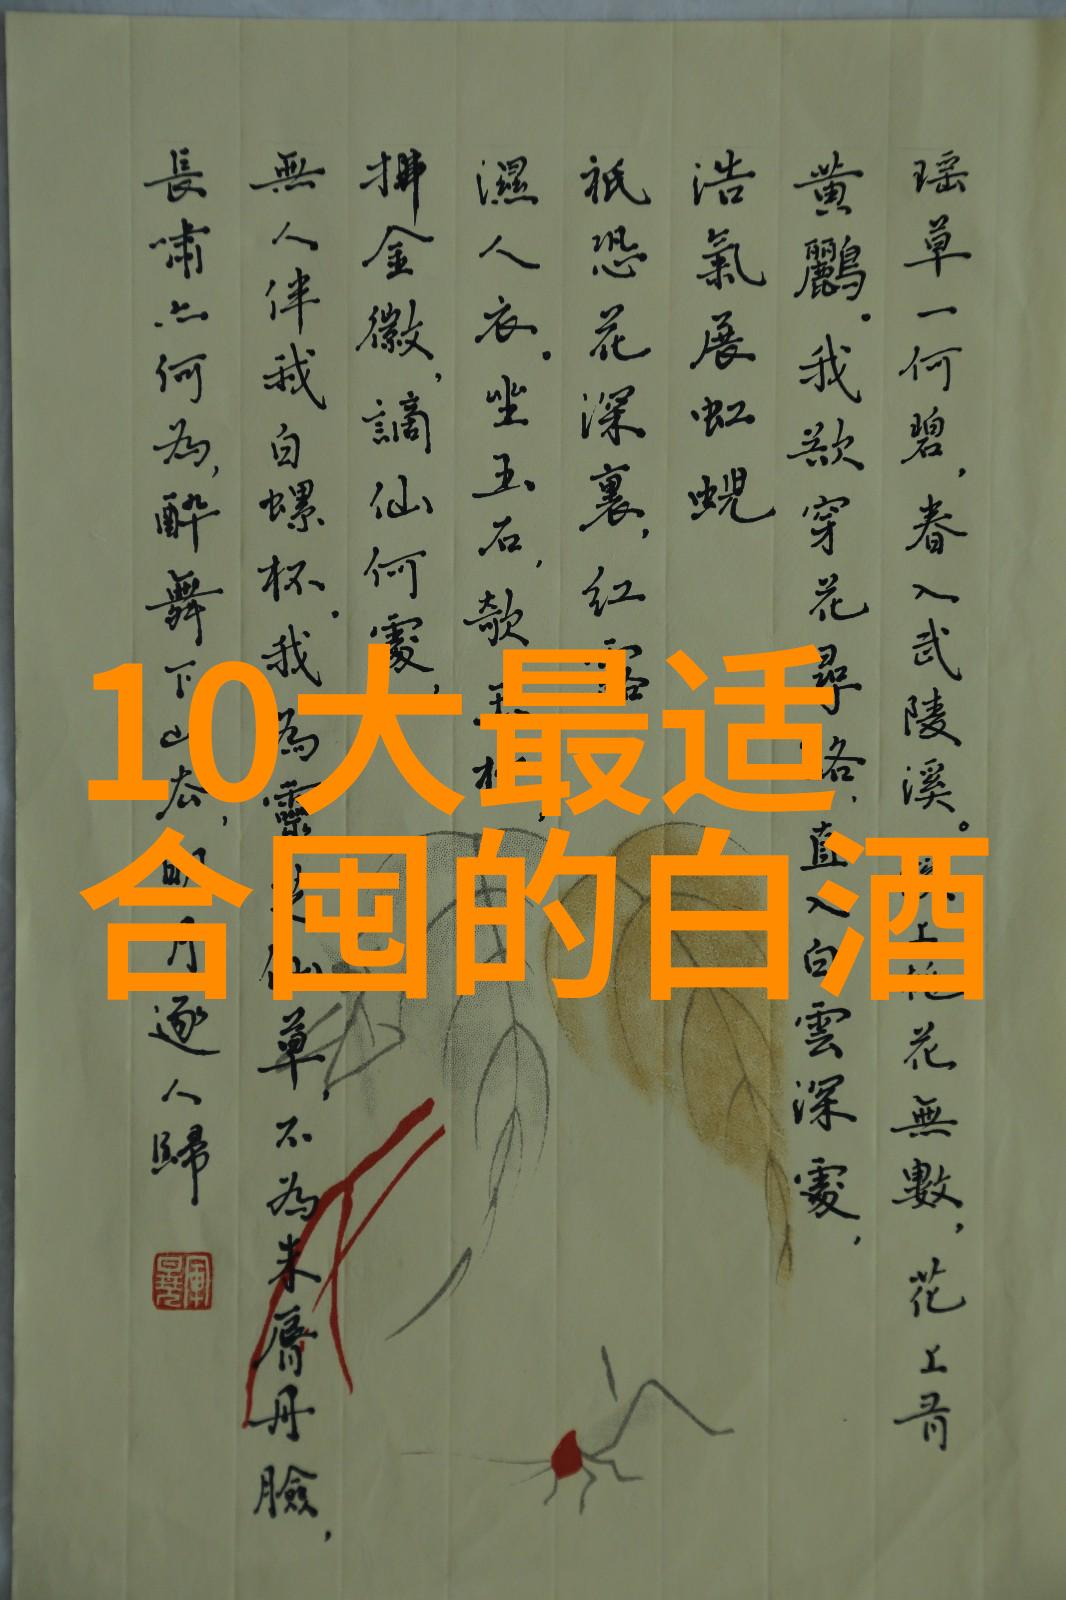 瑶草一何碧，春入武陵溪。溪上桃花無數，花上有
黄鸝。我欲穿花尋路，直入白雲深處，
浩氣展虹蜺
祇恐花深裏，紅露
濕人衣。坐玉石，欹玉枕，
拂金徽，謫仙何處，
無人伴我白螺杯。我為靈芝仙草，不為朱脣丹臉，
長嘯亦何為，醉舞下山去，明月逐人歸
10大最适
合囤的白酒